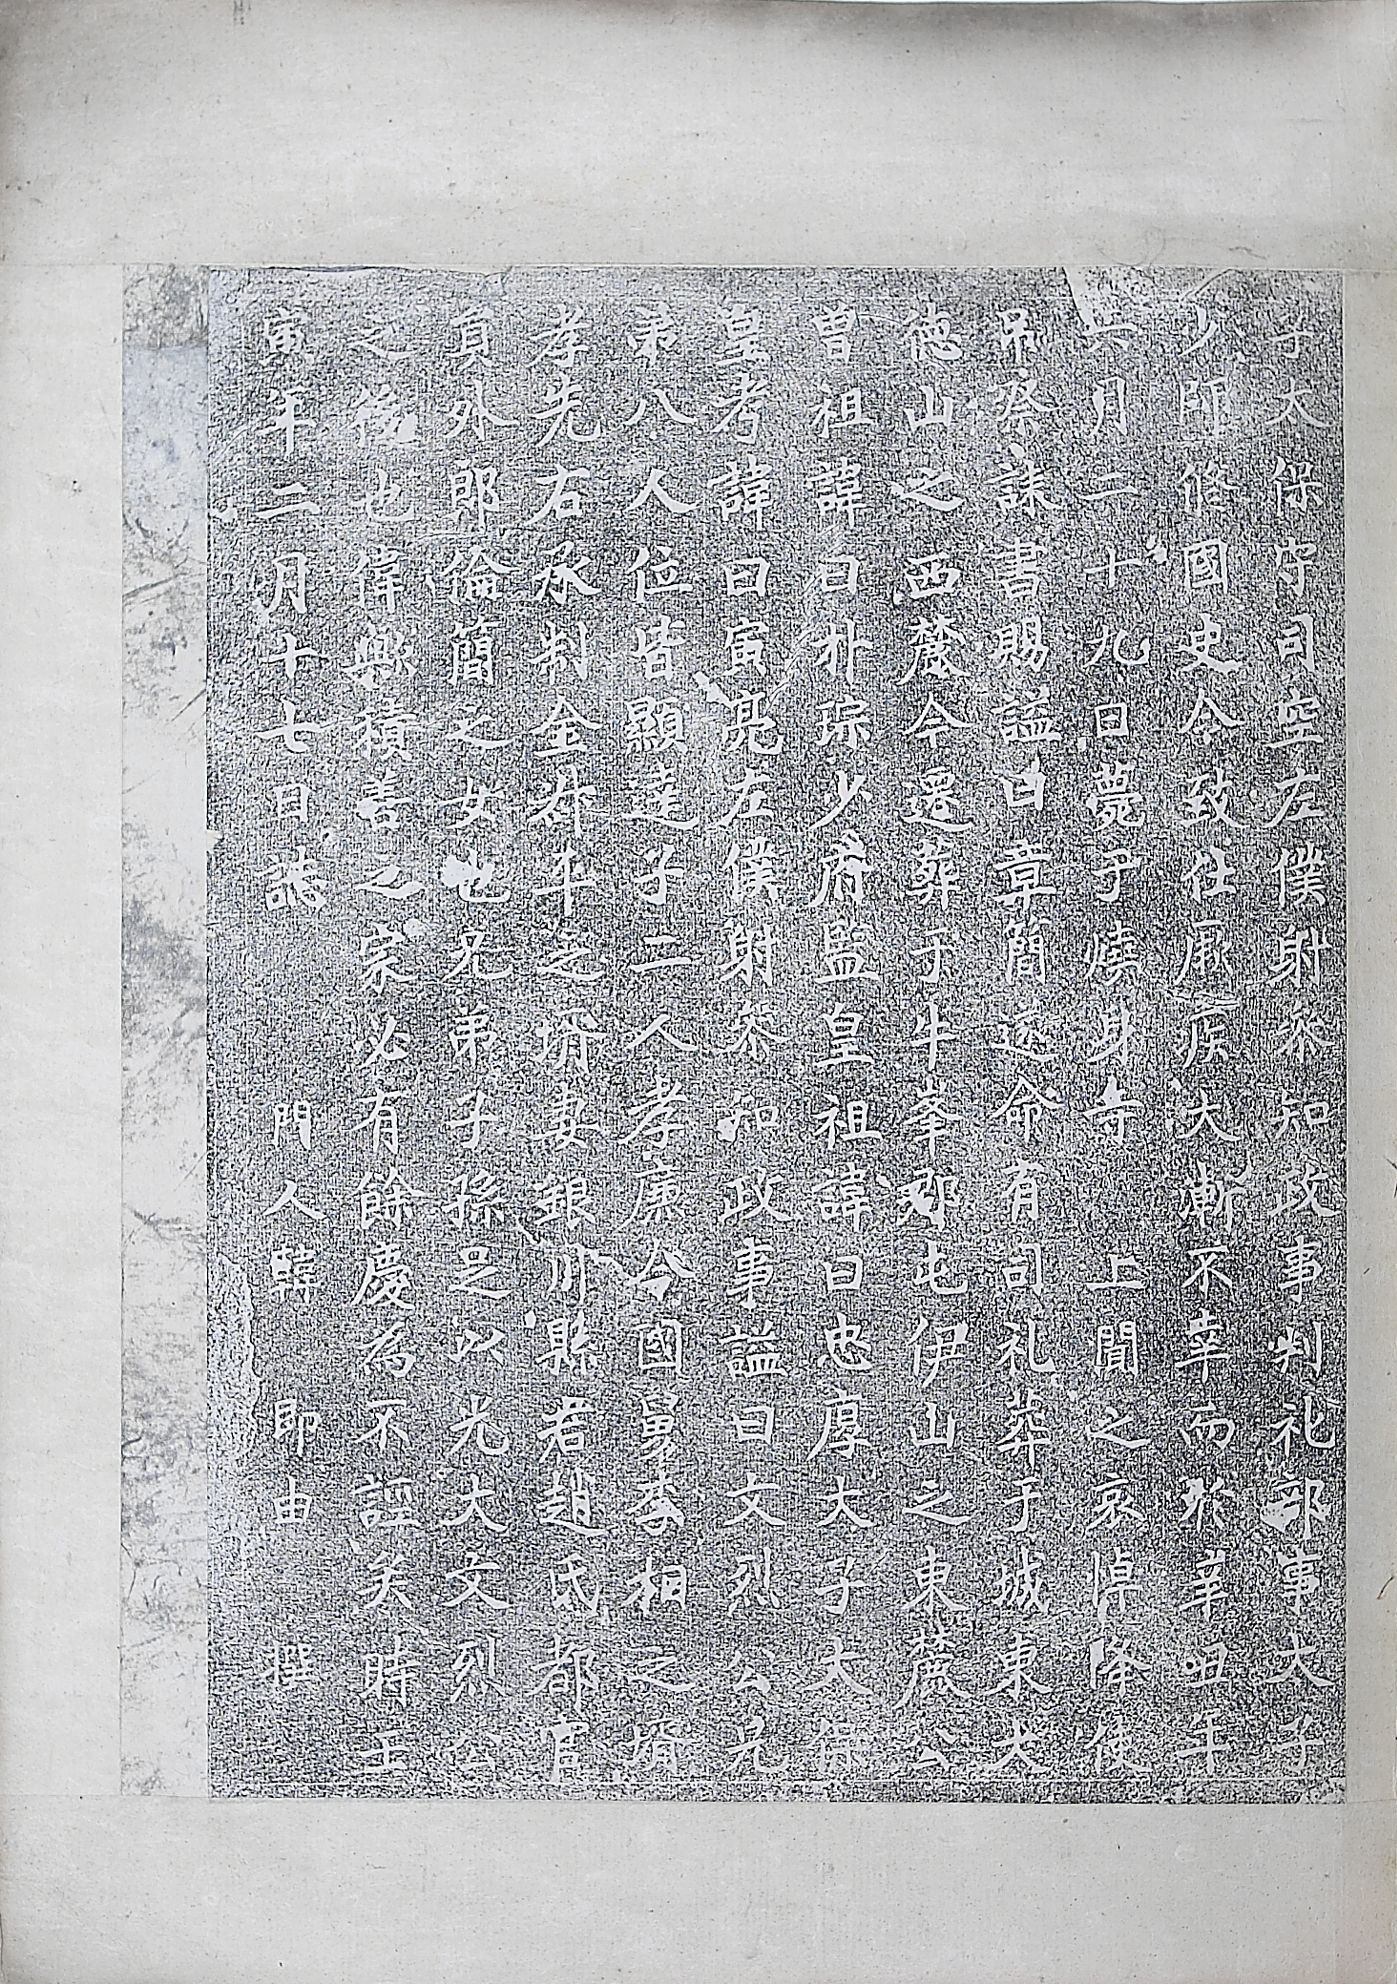 子大保守司空左僕射叅知政事判礼部事大子
少師修國史令致仕厥疾大漸不幸而於辛丑年
六月二十九日薨于燒身寺上聞之哀悼降使
吊祭誄書賜謚曰章簡遂命有司礼葬于城東大
徳山之西麓今遷葬于牛峯郡屯伊山之東麓公
曾祖諱曰朴琮少府監皇祖諱曰忠厚大子大保
皇考諱曰寅亮左僕射叅知政事謚曰文烈公兄
弟八人位皆顯達子二人孝廉公國舅李相之壻
孝先右承制金㪷平之壻妻銀川縣君趙氏都官
員外郎倫簡之女也兄弟子孫足以光大文烈公
之後也偉歟積善之家必有餘慶為不誣矣時壬
寅年二月十七日誌 門人韓 即由 撰